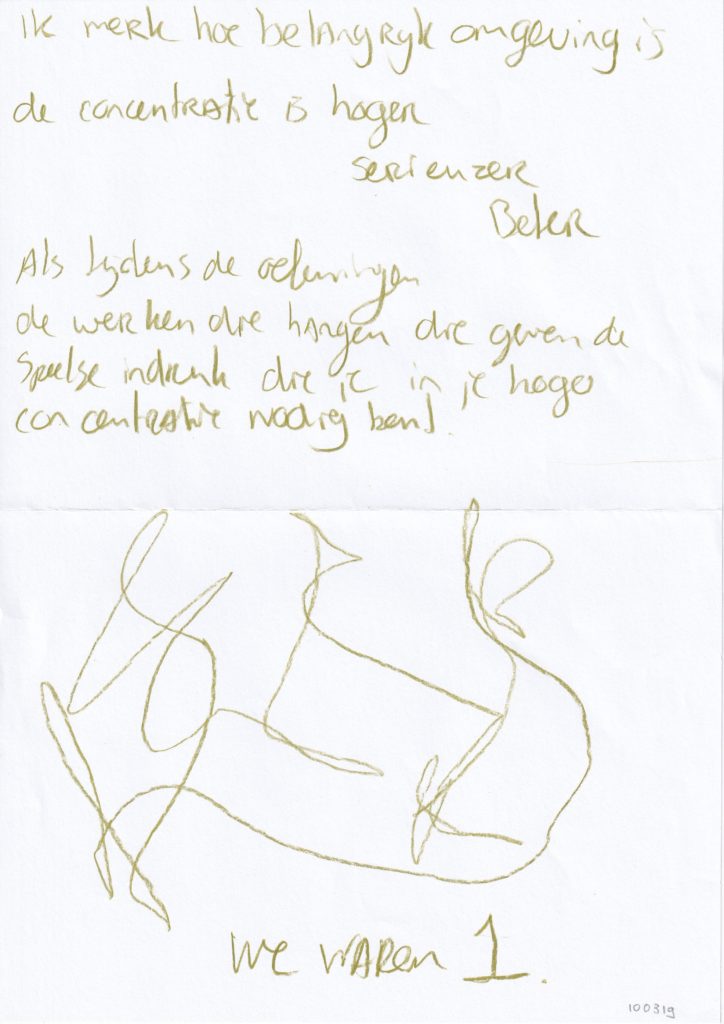 Ik merk hoe belangryk omgeving is
de concentratie is hoger
serieuzer
Beter
Als tydens de oefeningen
de werken die hangen die geven de
speelse indruk die je in je hoge
concentratie nodig bent.
We waren 1.
100319